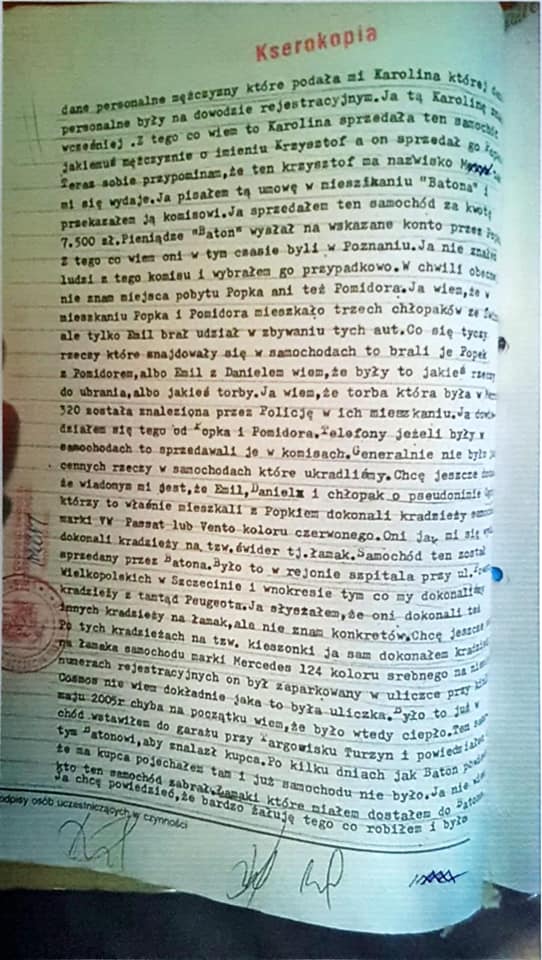 Kserokopia
dane personalne mężczyzny które podała mi Karolina której
personalne były na dowodzie rejestracyjnym.Ja tą Karolinę
wcześniej .Z tego co wiem to Karolina sprzedała ten samochód
jakiemuś mężczyznie o imieniu Krzysztof a on sprzedał go
Teraz sobie przypominam,że ten krzysztof ma nazwisko
mi się wydaje.Ja pisałem tą umowę w mieszkaniu "Batona" i
przekazałem ją komisowi.Ja sprzedałem ten samochód za kwotę
7.500 zł.Pieniądze "Baton" wysłał na wskazane konto przez
Z tego co wiem oni w tym czasie byli w Poznaniu.Ja nie
ludzi z tego komisu i wybrałem go przypadkowo.W chwili
nie znam miejsca pobytu Popka ani też Pomidora.Ja wiem,że w
mieszkaniu Popka i Pomidora mieszkało trzech chłopaków ze
ale tylko Emil brał udział w zbywaniu tych aut.Co się tyczy
rzeczy które snajdowały się w samochodach to brali je Popek
z Pomidorem,albo Emil z Danielem wiem,że były to jakieś rzeczy
do ubrania,albo jakieś torby.Ja wiem,że torba która była w
320 została znaleziona przez Policję w ich mieszkaniu.Ja
działem się tego od Popka i Pomidora.Telefony jeżeli były w
samochodach to sprzedawali je w komisach.Generalnie nie było
cennych rzeczy w samochodach które ukradliśmy.Chcę jeszcze
że wiadonym mi jest,że Emil,Danielx i chłopak o pseudonimie
którzy to właśnie mieszkali z Popkiem dokonali kradzieży
marki VW Passat lub Vento koloru czerwonego.Oni jak mi się
dokonali kradzieży na tzw.świder tj.łamak.Samochód ten został
sprzedany przez Batona.Było to w rejonie szpitala przy ul.
Wielkopolskich w Szczecinie i wnokresie tym co my dokonaliśmy
kradzieży z tamtąd Peugeota.Ja słyszałem,że oni dokonali też
innych kradzieży na łamak,ale nie znam konkretów.Chcę jeszcze
Po tych kradzieżach na tzw. kieszonki ja sam dokonałem
na łamaka samochodu marki Mercedes 124 koloru srebnego na
numerach rejestracyjnych on był zaparkowany w uliczce przy
Cosmos nie wiem dokładnie jaka to była uliczka.Było to już w
maju 2005r chyba na początku wiem,że było wtedy ciepło.Ten
chód wstawiłem do garażu przy Targowisku Turzyn i powiedziałem
tym Batonowi,aby znalazł kupca.Po kilku dniach jak Baton
że ma kupca pojechałem tam i już samochodu nie było.Ja nie
kto ten samochód zabrał.Łamaki które miałem dostałem do Batona.
Ja chcę powiedzieć,że bardzo żałuję tego co robiłem i było
podpisy osób uczestniczących w czynności